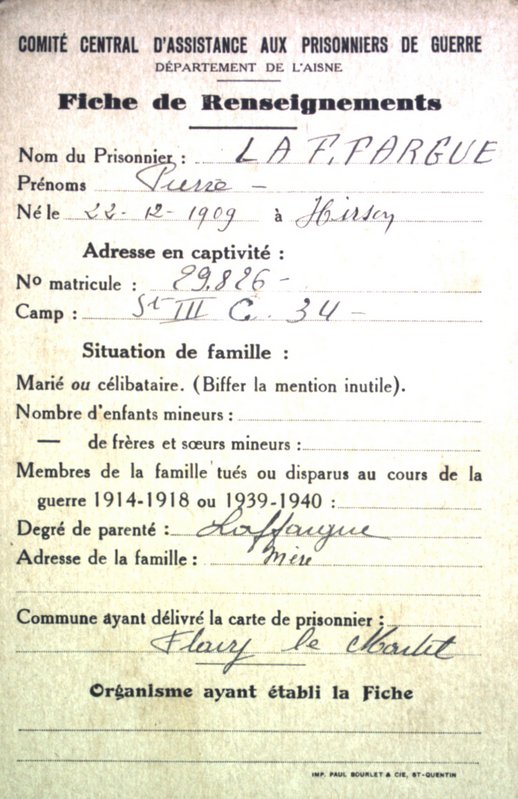 COMITÉ CENTRAL D'ASSISTANCE AUX PRISONNIERS DE GUERRE
DÉPARTEMENT DE L'AISNE
Fiche de Renseignements
Nom du Prisonnier : LAFFARGUE
Prénoms Pierre -
Né le 22-12-1909 à Hirson
Adresse en captivité :
No matricule : 29.826 -
Camp : St III C. 34 -
Situation de famille :
Marié ou célibataire. (Biffer la mention inutile).
Nombre d'enfants mineurs :
— de frères et sœurs mineurs :
Membres de la famille tués ou disparus au cours de la
guerre 1914-1918 ou 1939-1940 :
Degré de parenté : Laffargue
Adresse de la famille : mère
Commune ayant délivré la carte de prisonnier :
Flavy le Martel
Organisme ayant établi la Fiche
IMP. PAUL BOURLET & CIE, ST-QUENTIN